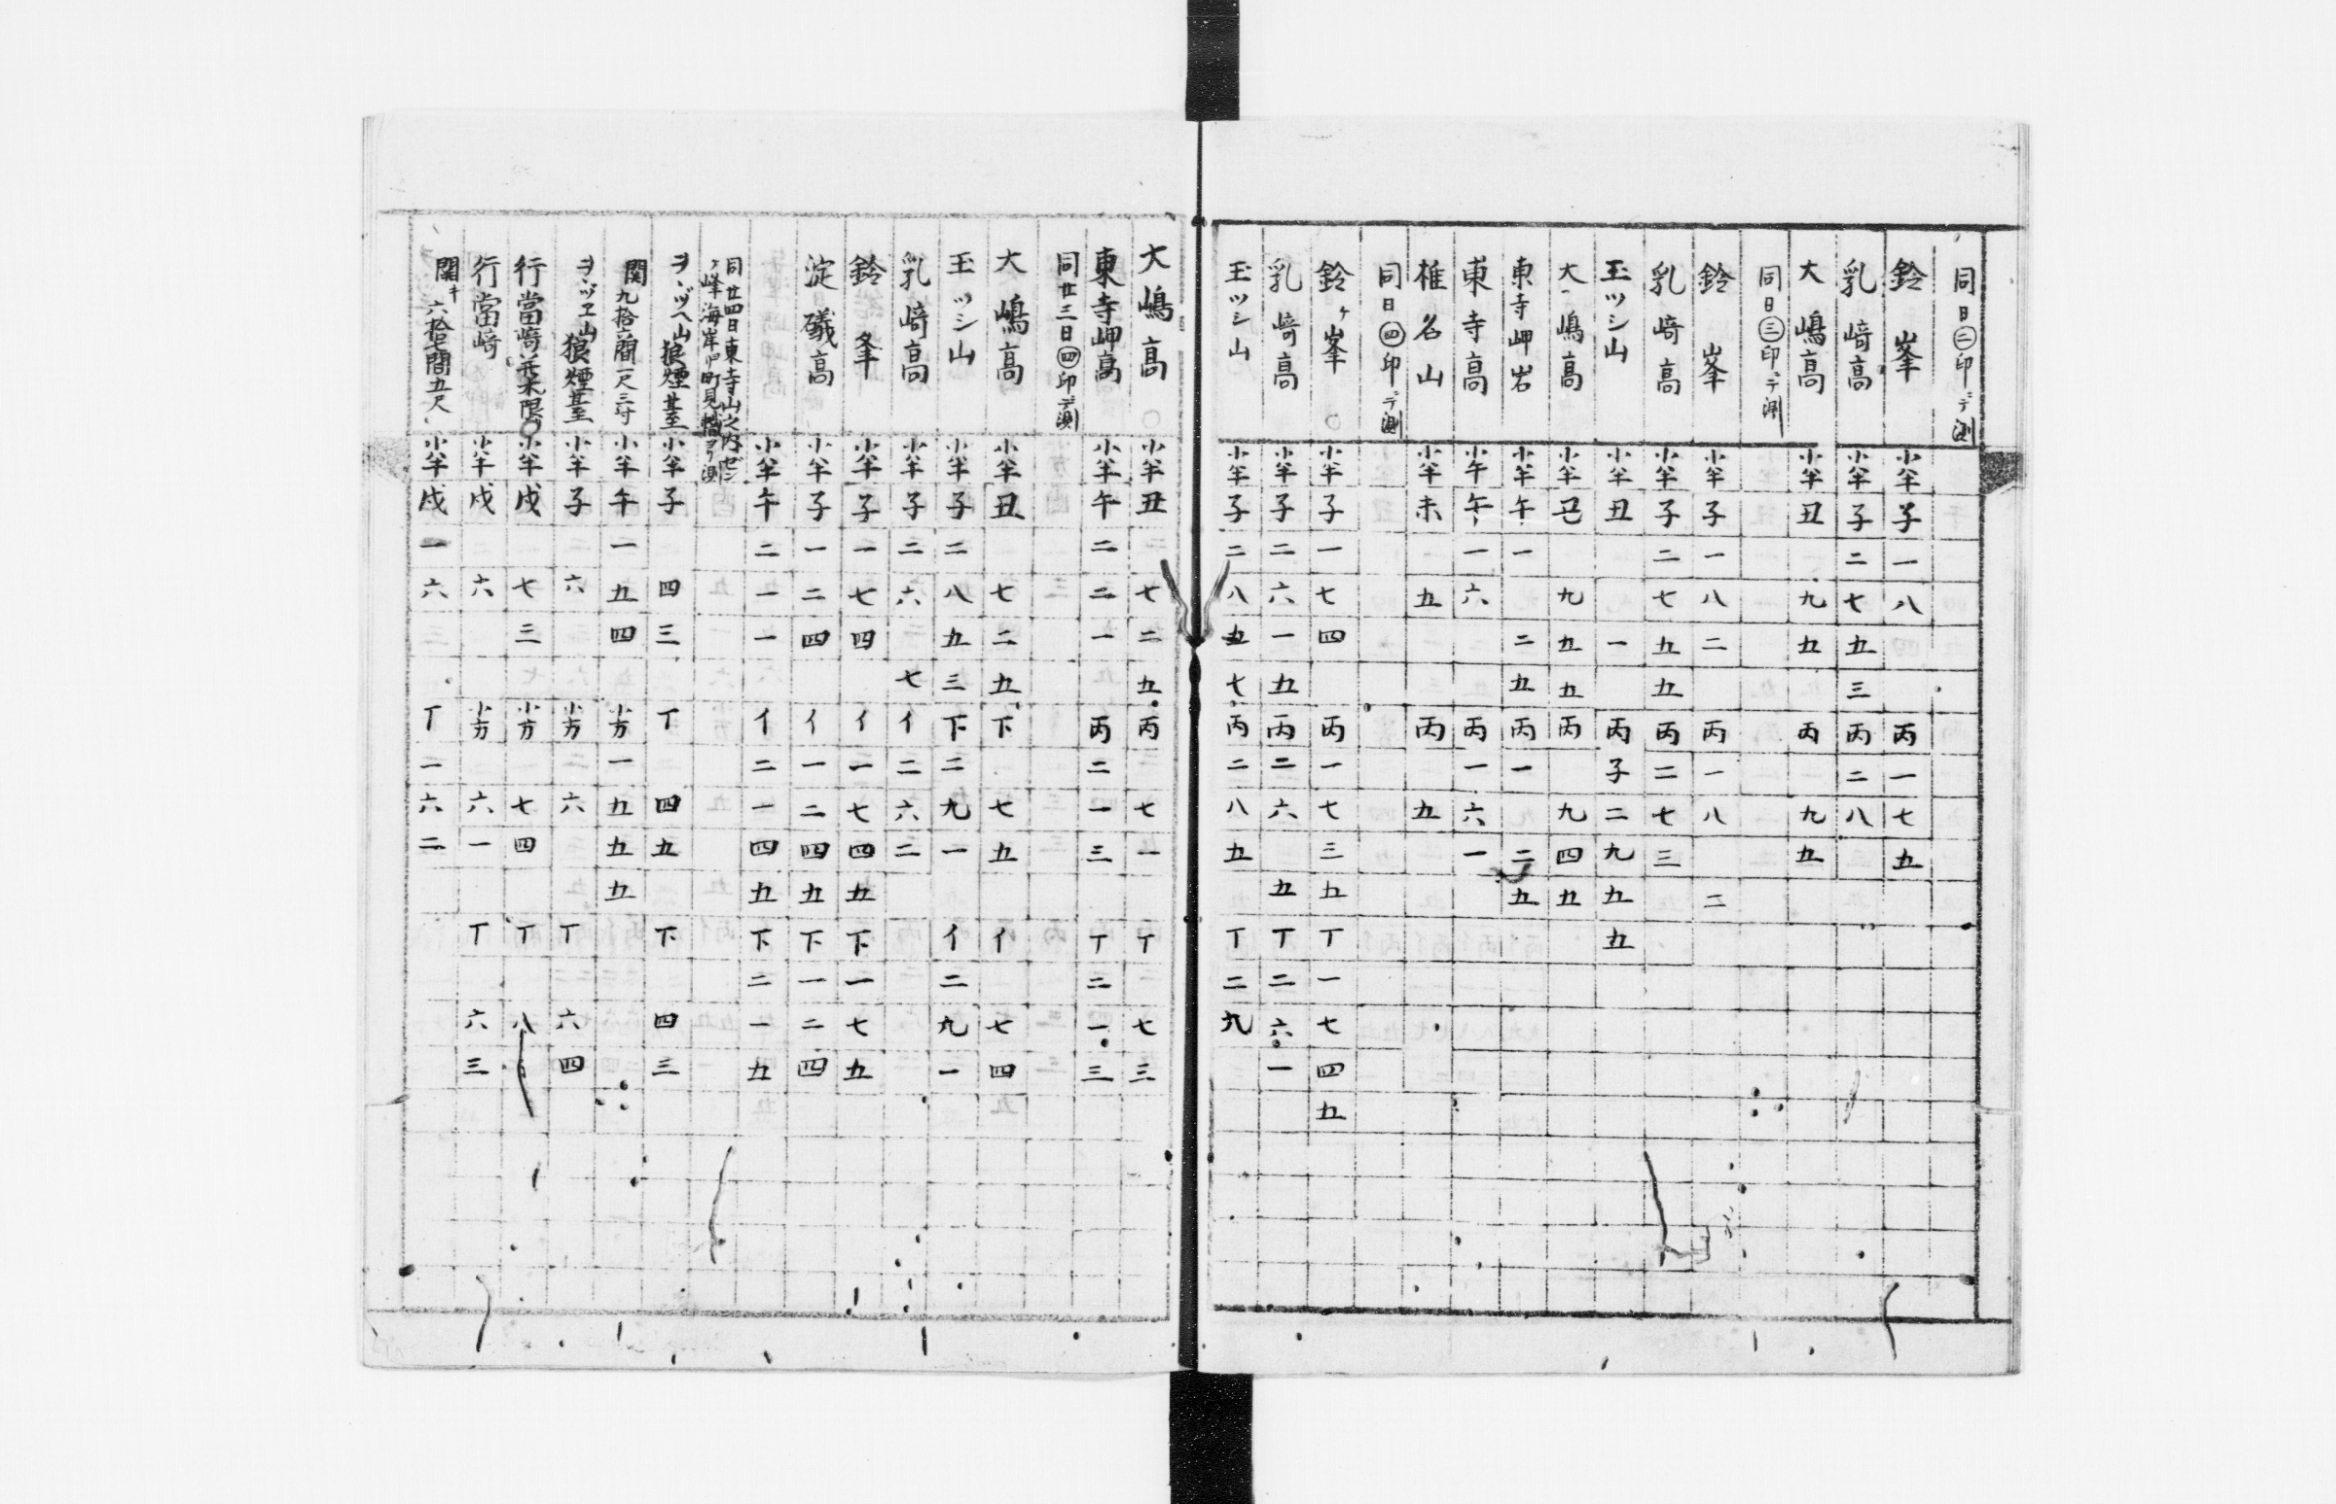 同日㊁印ニテ測
鈴峯 小半 子一八 丙一七五
乳﨑高 小半 子二七五三 丙二八
大嶋高 小半 丑九五 丙九五
同日㊂印ニテ測
鈴峯 小半 子一八二 丙一八二
乳﨑高 小半 子二七五五 丙二七三
玉ツシ山 小半 丑一 丙子二九五五
大嶋高 小半 丑九五五 丙九四五
東寺岬岩 小半 午一二五 丙一二五
東寺高 小午 午一六 丙一六一
椎名山 小半 未五 丙五
同日㊃印ニテ測
鈴ヶ峯 小半 子一七四 丙一七三五 丁一七四五
乳﨑高 小半 子二六一五 丙二六五 丁二六一
玉ツシ山 小半 子二八五七 丙二八五 丁二九
大嶋高 小半 丑七二五 丙七一 丁七三
東寺岬高 小半 午二二一 丙二一三 丁二一三
同廿三日㊃印ニテ測
大嶋高 小半 丑七二五 下七五 イ七四
玉ツシ山 小半 子二八五三 下二九一 イ二九一
乳﨑高 小半 子二六七 イ二六二
鈴峯 小半 子一七四 イ一七四五 下一七五
淀礒高 小半 子一二四 イ一二四五 下一二四
小半 午二一一 イ二一四五 下二一五
同廿四日東寺山之内ゼン
ヶ峰海岸町見
ヲヽヅヘ山狼煙臺 小半 子四三 丁四五 下四三
関九拾六間一尺三寸 小半 午一五四 小方一五五五
ヲヽヅヱ山狼煙臺 小半 子六 小方六 丁六四
行當﨑 小半 戌七三 小方七四 丁八
行當﨑 小半 戌六 小方六一 丁六三
関キ六拾七間五尺 小半 戌一六 丁一六二